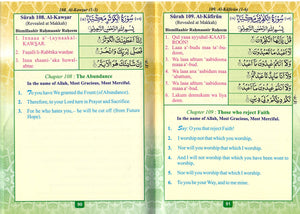 108. Al-Kawsar (1-3)
Sûrah 108. Al-Kawsar
(Revealed at Makkah)
Bismillaahir Rahmaanir Raheem
1. Innaaa a'-taynaakal-
KAWSAR.
2. Fasalli li-Rabbika wanhar.
3. Inna shaani-'aka huwal-
abtar
Chapter 108 : The Abundance
In the name of Allah, Most Gracious, Most Merciful.
1. To you have We granted the Fount (of Abundance).
2. Therefore, to your Lord turn in Prayer and Sacrifice
3. For he who hates you,- he will be cut off (from Future
Hope).
90
109. Al-Kâfirûn (1-6)
Sûrah 109. Al-Kâfirûn
(Revealed at Makkah)
Bismillaahir Rahmaanir Raheem
1. Qul yaaa ayyuhal-KAAFI-
ROON!
2. Laaa a'-budu maa ta'-bu-
doon.
3. Wa laaa antum 'aabidoona
maaa a'-bud.
4.
5. Wa laaa antum 'aabidoona
maaa a'-bud.
6. Lakum deenukum wa liya
deen.
Chapter 109 : Those who reject Faith
In the name of Allah, Most Gracious, Most Merciful.
1. Say: O you that reject Faith!
2. I worship not that which you worship,
3. Nor will you worship that which I worship.
4. And I will not worship that which you have been wont to
worship,
5. Nor will you worship that which I worship.
6. To you be your Way, and to me mine.
91